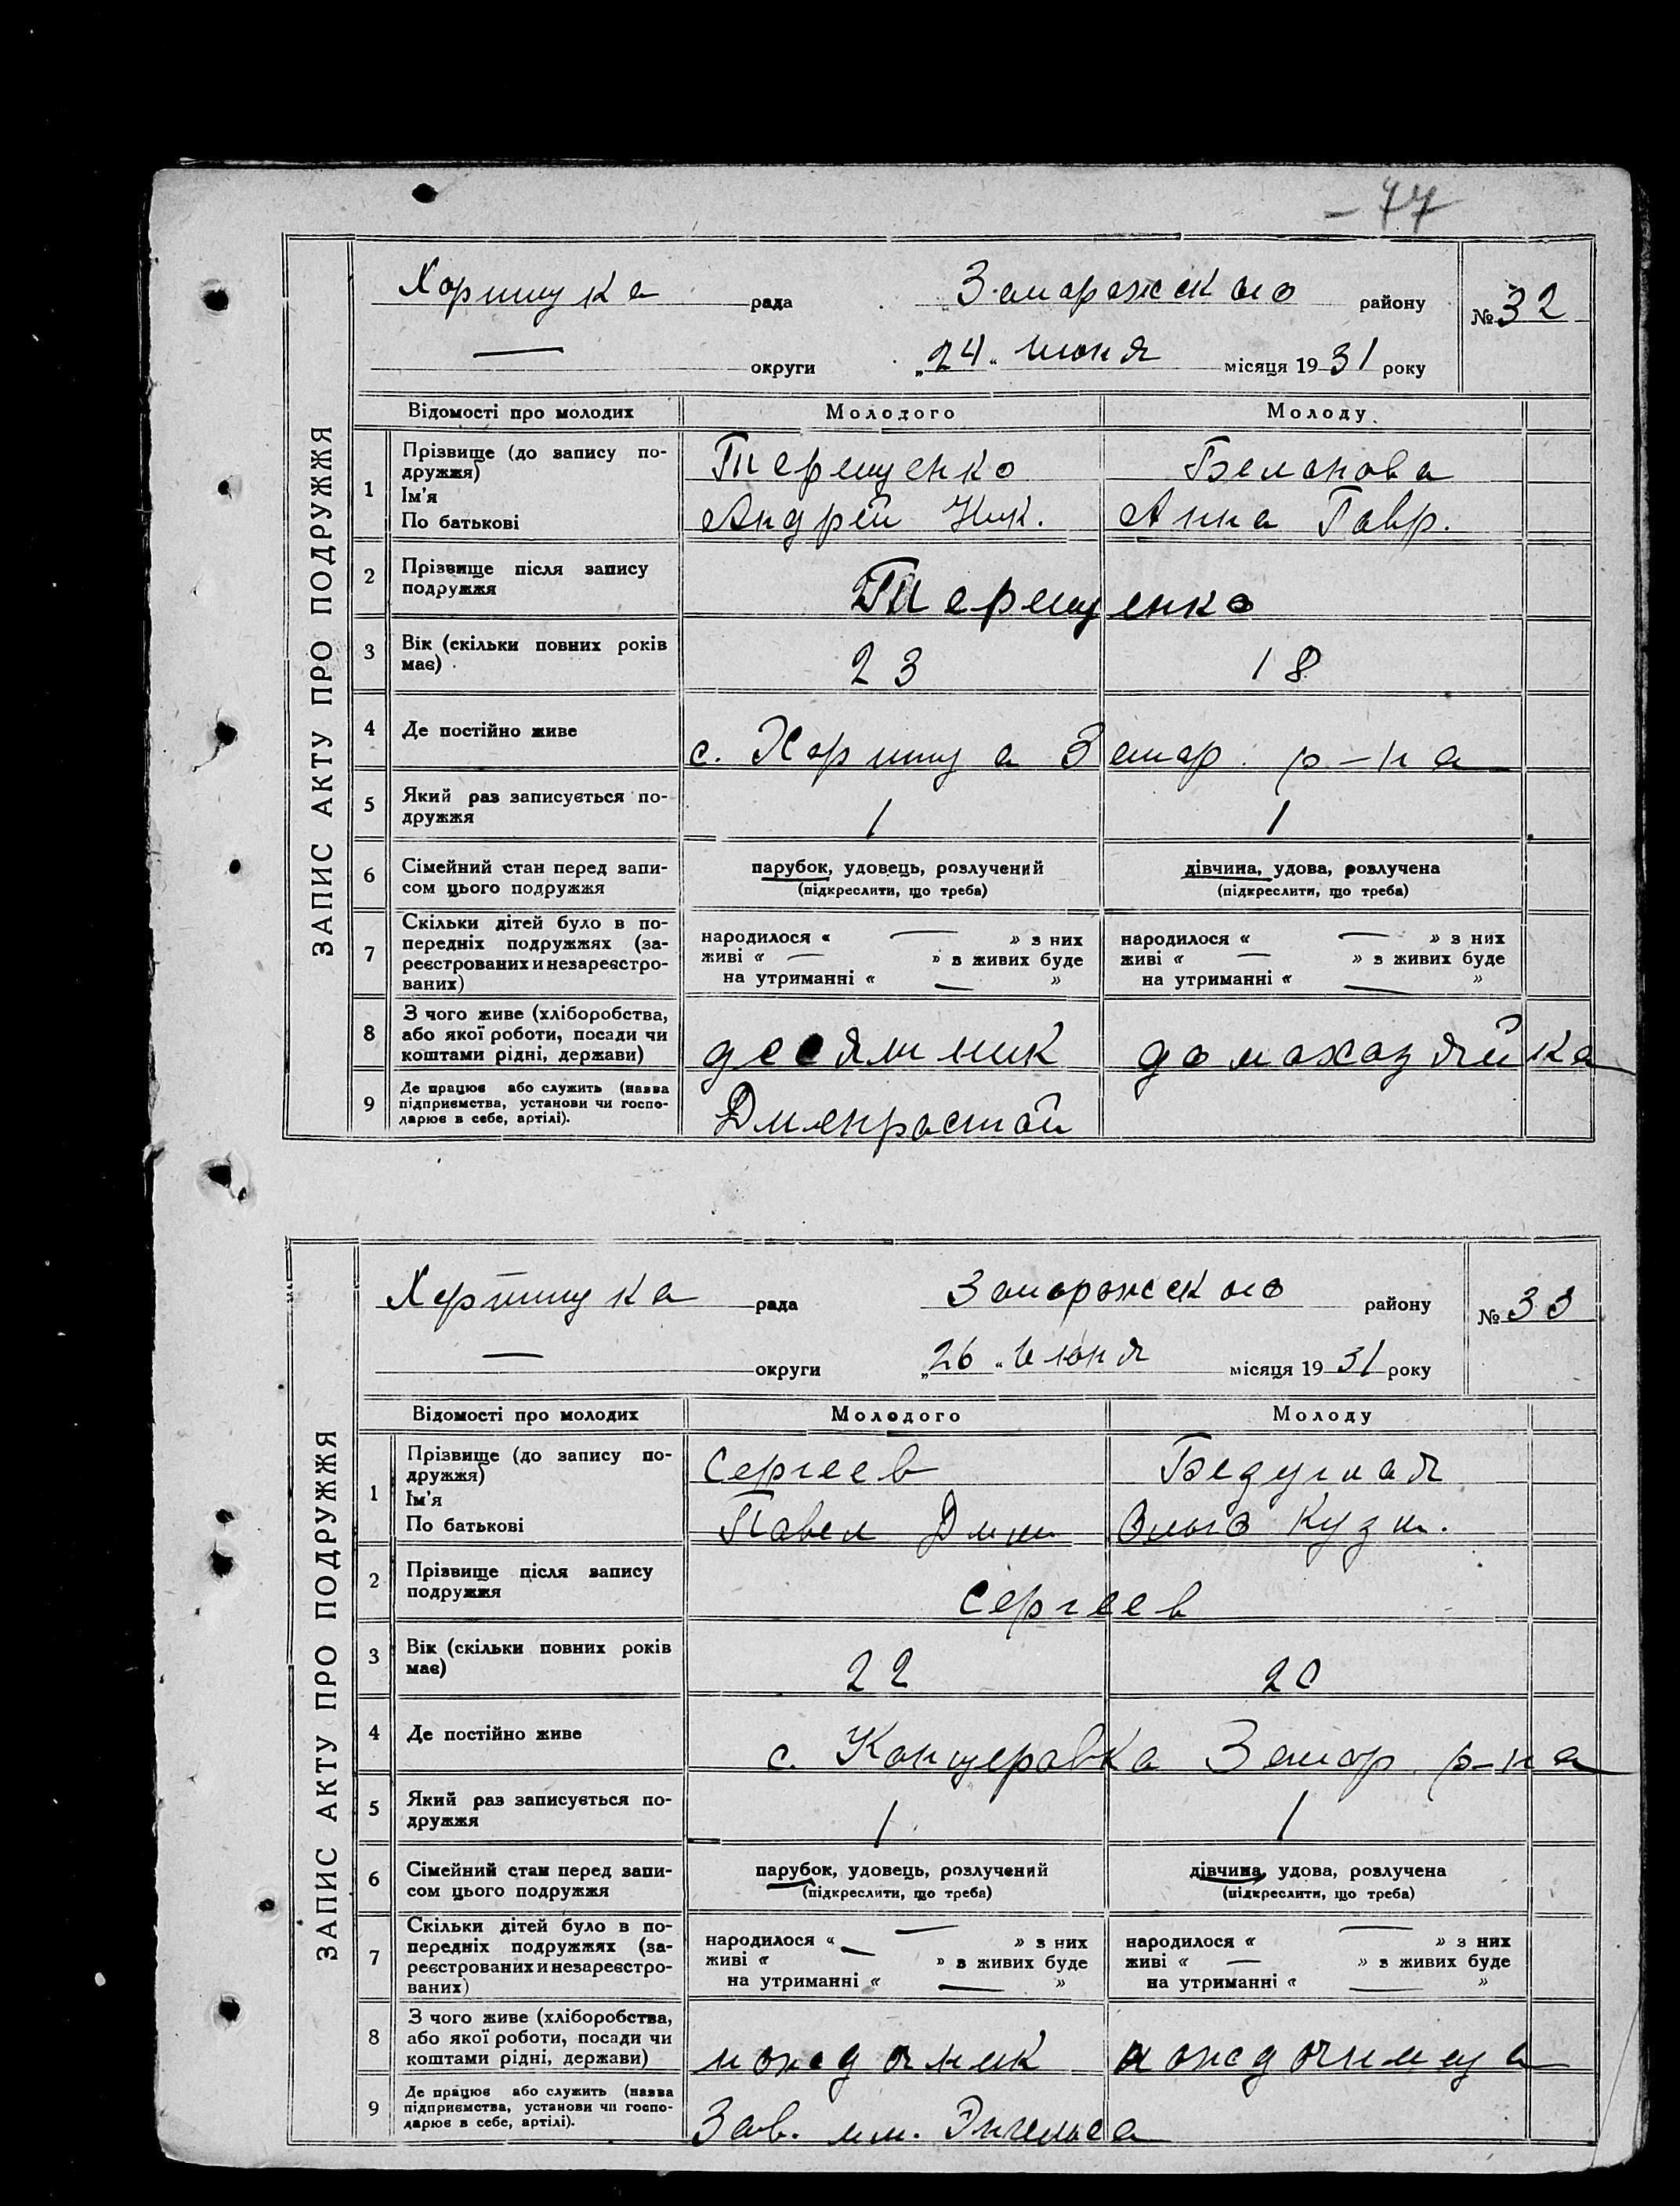 – 44
ЗАПИС АКТУ ПРО ПОДРУЖЖЯ
Хортицка рада Запорожского району №32
— округи „24“ июня місяця 1931 року
Відомості про молодих Молодого Молоду
1 Прізвище (до запису по-
дружжя)
Ім'я
По батькові
Терещенко Беланова
Андрей Ник. Анна Гавр.
2 Прізвище після запису
подружжя
Терещенко
3 Вік (скільки повних років
має)
23 18
4 Де постійно живе
с. Хортица Запор. р-на
5 Який раз записується по-
дружжя
1 1
6 Сімейний стан перед запи-
сом цього подружжя
парубок, удовець, розлучений дівчина, удова, розлучена
(підкреслити, що треба) (підкреслити, що треба)
7 Скільки дітей було в по-
передніх подружжях (за-
реєстрованих и незареєстро-
ваних)
народилося « — » з них народилося « — » з них
живі « — » в живих буде живі « — » з живих буде
на утриманні « — » на утриманні « — »
8 З чого живе (хліборобства,
або якої роботи, посади чи
коштами рідні, держави)
десятник домохозяйка
9 Де працює або служить (назва
підприємства, установи чи госпо-
дарює в себе, артілі).
Днепрострой
ЗАПИС АКТУ ПРО ПОДРУЖЖЯ
Хортицка рада Запорожского району №33
— округи „26“ июня місяця 1931 року
Відомості про молодих Молодого Молоду
1 Прізвище (до запису по-
дружжя)
Ім'я
По батькові
Сергеев
Павел Дмит Ольга Кузм.
2 Прізвище після запису
подружжя
Сергеев
3 Вік (скільки повних років
має)
22 20
4 Де постійно живе
с. Канцеровка Запор. р-на
5 Який раз записується по-
дружжя
1 1
6 Сімейний стан перед запи-
сом цього подружжя
парубок, удовець, розлучений дівчина, удова, розлучена
(підкреслити, що треба) (підкреслити, що треба)
7 Скільки дітей було в по-
передніх подружжях (за-
реєстрованих и незареєстро-
ваних)
народилося « — » з них народилося « — » з них
живі « — » в живих буде живі « — » з живих буде
на утриманні « — » на утриманні « — »
8 З чого живе (хліборобства,
або якої роботи, посади чи
коштами рідні, держави)
наждачник наждачница
9 Де працює або служить (назва
підприємства, установи чи госпо-
дарює в себе, артілі).
Зав. им. Энгельса